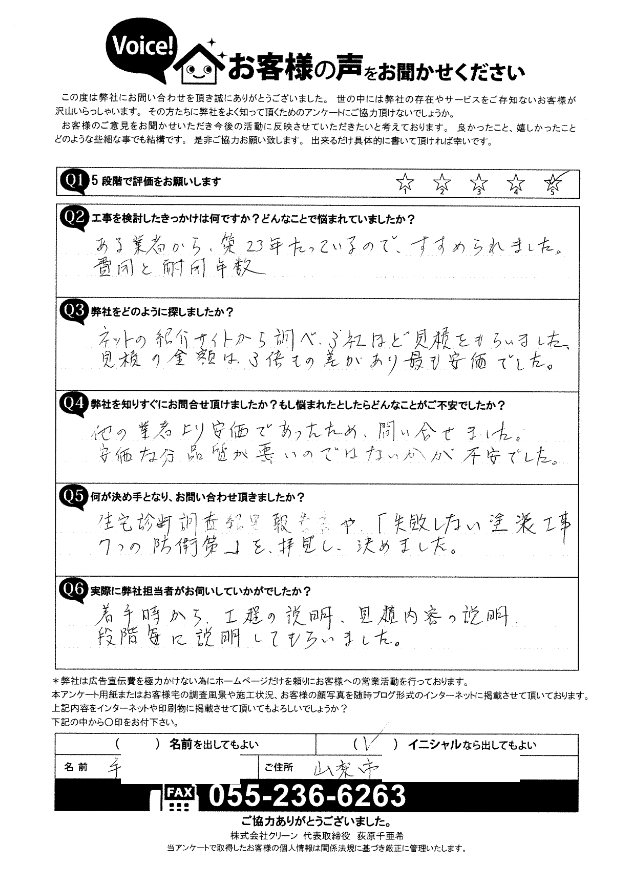 Voice!
お客様の声をお聞かせください
この度は弊社にお問い合わせを頂き誠にありがとうございました。 世の中には弊社の存在やサービスをご存知ないお客様が
沢山いらっしゃいます。 その方たちに弊社をよく知って頂くためのアンケートにご協力頂けないでしょうか。
お客様のご意見をお聞かせいただき今後の活動に反映させていただきたいと考えております。 良かったこと、嬉しかったこと
どのような些細な事でも結構です。 是非ご協力お願い致します。 出来るだけ具体的に書いて頂ければ幸いです。
Q1 5段階で評価をお願いします
☆1 ☆2 ☆3 ☆4 ☆5
Q2 工事を検討したきっかけは何ですか？どんなことで悩まれていましたか？
ある業者から、築23年たっているので、すすめられました。
費用と耐用年数
Q3 弊社をどのように探しましたか？
ネットの紹介サイトから調べ、3社ほど見積をもらいました、
見積の金額は、3倍もの差があり最も安価でした。
Q4 弊社を知りすぐにお問合せ頂けましたか？もし悩まれたとしたらどんなことがご不安でしたか？
他の業者より安価であったため、問い合せました。
安価な分品質が悪いのではないかが不安でした。
Q5 何が決め手となり、お問い合わせ頂きましたか？
住宅診断調査結果報告書や、「失敗しない塗装工事
7つの防衛策」を、拝見し、決めました。
Q6 実際に弊社担当者がお伺いしていかがでしたか？
着手時から、工程の説明、見積内容の説明、
段階毎に説明してもらいました。
＊弊社は広告宣伝費を極力かけない為にホームページだけを頼りにお客様への営業活動を行っております。
本アンケート用紙またはお客様宅の調査風景や施工状況、お客様の顔写真を随時ブログ形式のインターネットに掲載させて頂いております。
上記内容をインターネットや印刷物に掲載させて頂いてもよろしいでしょうか？
下記の中から○印をお付下さい。
（　　）名前を出してもよい （✓）イニシャルなら出してもよい
名前 ご住所 山梨市
FAX 055-236-6263
ご協力ありがとうございました。
株式会社クリーン 代表取締役 荻原千亜希
当アンケートで取得したお客様の個人情報は関係法規に基づき厳正に管理いたします。